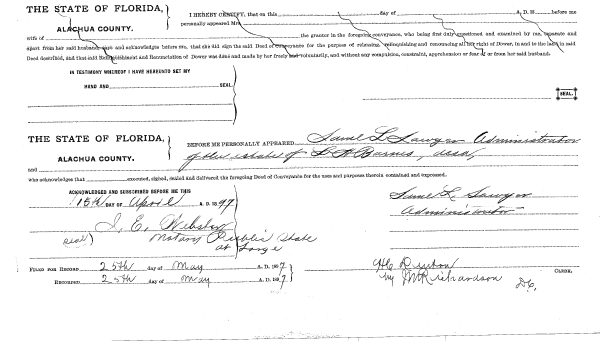 THE STATE OF FLORIDA,
ALACHUA COUNTY.
I HEREBY CERTIFY, that on this day of A. D. 18 before me
personally appeared Mrs.
wife of the grantor in the foregoing conveyance, who being first duly sworn and examined by me, separate and
apart from her said husband, says and acknowledges before me, that she did sign the said Deed of Conveyance for the purpose of releasing, relinquishing and renouncing all her right of Dower, in and to the land in said
Deed described, and that said Relinquishment and Renunciation of Dower was done and made by her freely and voluntarily, and without any compulsion, constraint, apprehension or fear of or from her said husband.
IN TESTIMONY WHEREOF I HAVE HEREUNTO SET MY
HAND AND SEAL
SEAL.
THE STATE OF FLORIDA,
ALACHUA COUNTY.
BEFORE ME PERSONALLY APPEARED Saml L. Sawyer Administrator
of the estate of Barnes, decd,
and
who acknowledges that executed, signed, sealed and delivered the foregoing Deed of Conveyance for the uses and purposes therein contained and expressed.
ACKNOWLEDGED AND SUBSCRIBED BEFORE ME THIS
15th DAY OF April A. D. 1897
Saml L. Sawyer
Administrator
I. E. Webster
(seal) Notary Public State
at Large
FILED FOR RECORD 25th day of May A. D. 1897
RECORDED 25th day of May A. D. 1897
H C Denton CLERK.
by Richardson DC.